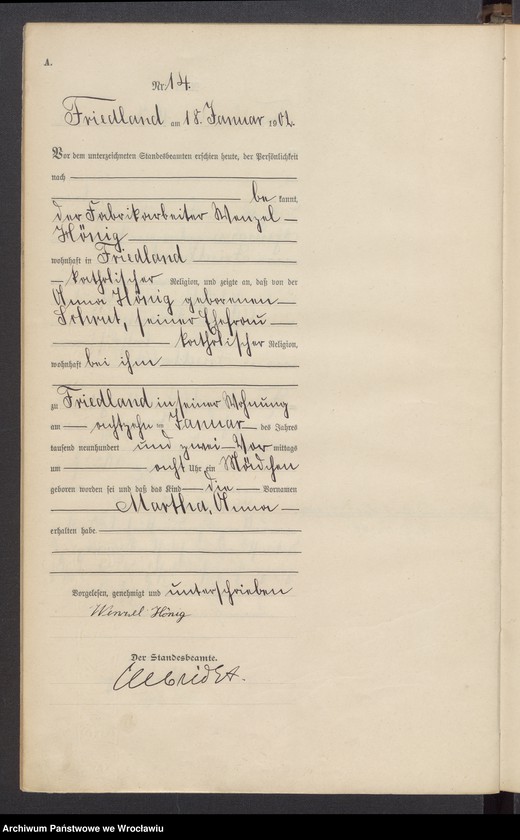 A.
Nr. 14.
Friedland am 18. Januar 1902.
Vor dem unterzeichneten Standesbeamten erschien heute, der Persönlichkeit
nach
be kannt,
der Fabrikarbeiter Wenzel
Hönig
wohnhaft in Friedland
katholischer Religion, und zeigte an, daß von der
Anna Hönig geborenen
seiner Ehefrau
katholischer Religion,
wohnhaft bei ihm
zu Friedland in seiner Wohnung
am achtzehn ten Januar des Jahres
tausend neunhundert und zwei Vor mittags
um acht Uhr ein Mädchen
geboren worden sei und daß das Kind die Vornamen
Martha, Anna
erhalten habe.
Vorgelesen, genehmigt und unterschrieben
Wenzel Hönig
Der Standesbeamte.
Archiwum Państwowe we Wrocławiu